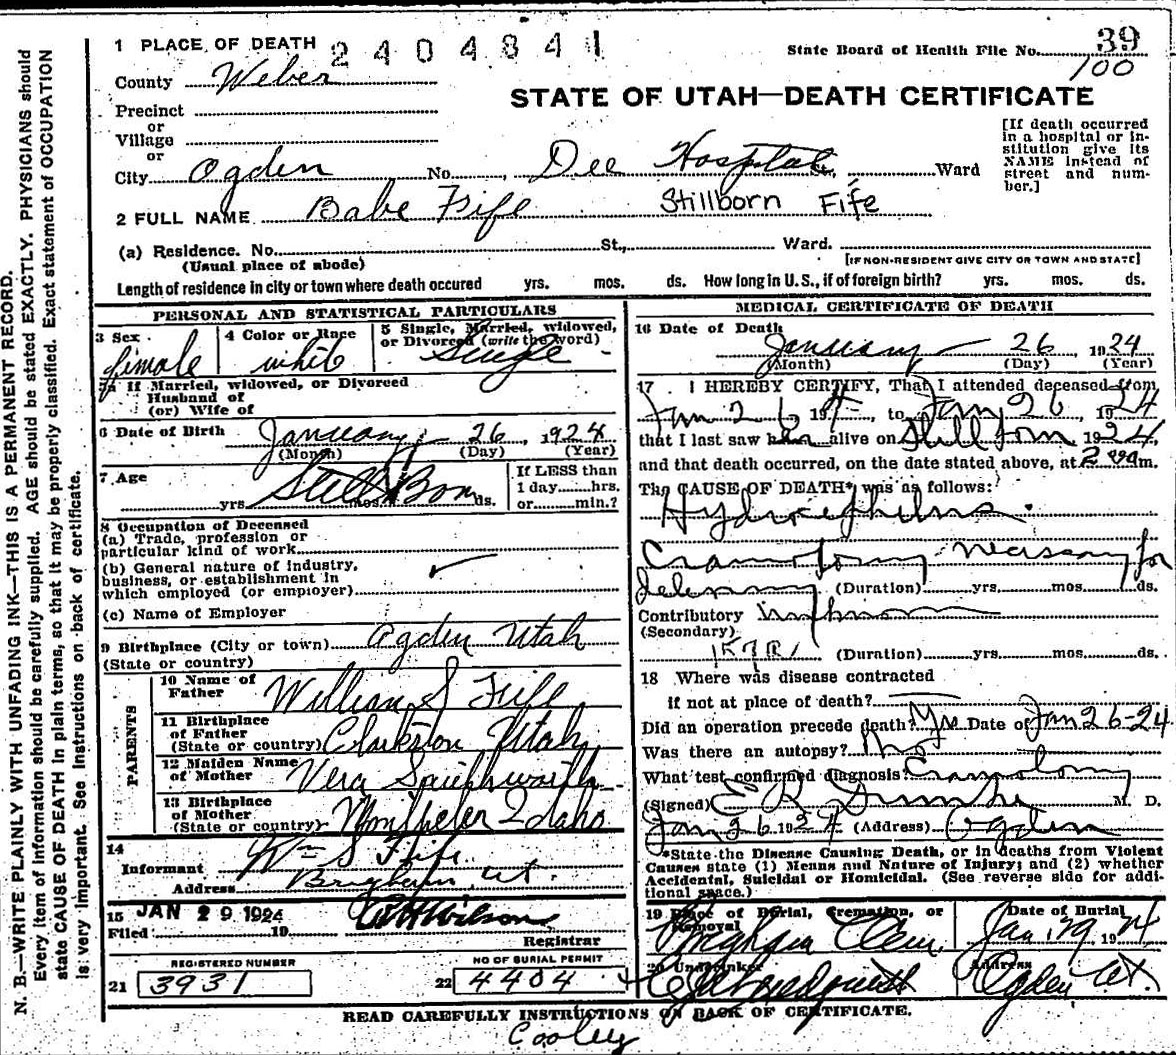 1 PLACE OF DEATH 2404841
State Board of Health File No. 39
100
County Weber
STATE OF UTAH—DEATH CERTIFICATE
Precinct
or
Village
or
City Ogden No. Dee Hospital St., Ward
[If death occurred
in a hospital or in-
stitution give its
NAME instead of
street and num-
ber.]
2 FULL NAME Babe Fife Stillborn Fife
(a) Residence. No. St., Ward.
(Usual place of abode) [IF NON-RESIDENT GIVE CITY OR TOWN AND STATE]
Length of residence in city or town where death occured yrs. mos. ds. How long in U.S., if of foreign birth? yrs. mos. ds.
PERSONAL AND STATISTICAL PARTICULARS
3 Sex
female
4 Color or Race
white
5 Single, Married, widowed,
or Divorced (write the word)
Single
5a If Married, widowed, or Divorced
Husband of
(or) Wife of
6 Date of Birth January 26, 1924
(Month) (Day) (Year)
7 Age
Still Born
yrs. mos. ds.
If LESS than
1 day hrs.
or min.?
8 Occupation of Deceased
(a) Trade, profession or
particular kind of work
(b) General nature of industry,
business, or establishment in
which employed (or employer)
(c) Name of Employer
9 Birthplace (City or town) Ogden Utah
(State or country)
PARENTS
10 Name of
Father William S Fife
11 Birthplace
of Father
(State or country) Clarkston Utah
12 Maiden Name
of Mother Vera Southworth
13 Birthplace
of Mother
(State or country) Montpelier Idaho
14
Informant Wm S Fife
Address Brigham, Ut.
15 JAN 29 1924
Filed 19
Wilson
Registrar
REGISTERED NUMBER
21 3931
NO OF BURIAL PERMIT
22 4404
MEDICAL CERTIFICATE OF DEATH
16 Date of Death
January 26, 1924
(Month) (Day) (Year)
17 I HEREBY CERTIFY, That I attended deceased from
Jan 26 19 to Jan 26, 1924
that I last saw alive on Still born 1924,
and that death occurred, on the date stated above, at 2 m.
The CAUSE OF DEATH* was as follows:
Hydrocephalus
Craniotomy necessary for
delivery (Duration) yrs. mos. ds.
Contributory
(Secondary)
(Duration) yrs. mos. ds.
18 Where was disease contracted
if not at place of death?
Did an operation precede death? Yes Date of Jan 26-24
Was there an autopsy? No
What test confirmed diagnosis? Craniotomy
(Signed) E R M. D.
Jan 26 1924 (Address) Ogden
*State the Disease Causing Death, or in deaths from Violent
Causes state (1) Means and Nature of Injury; and (2) whether
Accidental, Suicidal or Homicidal. (See reverse side for addi-
tional space.)
19 Place of Burial, Cremation, or
Removal
Brigham Cem.
Date of Burial
Jan, 29 1924
20 Undertaker
Address
Ogden Ut.
READ CAREFULLY INSTRUCTIONS ON BACK OF CERTIFICATE.
Cooley
N. B.—WRITE PLAINLY WITH UNFADING INK—THIS IS A PERMANENT RECORD.
Every item of information should be carefully supplied. AGE should be stated EXACTLY. PHYSICIANS should
state CAUSE OF DEATH in plain terms, so that it may be properly classified. Exact statement of OCCUPATION
is very important. See instructions on back of certificate.